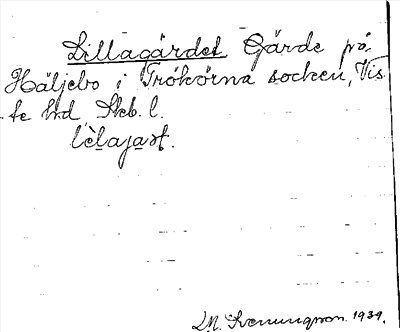 Lillagärdet Gärde på
Häljebo i Trökörna socken, Vis
te hd Skb. l.
lèlajaṣt.
L.M. Svenungsson. 1939.